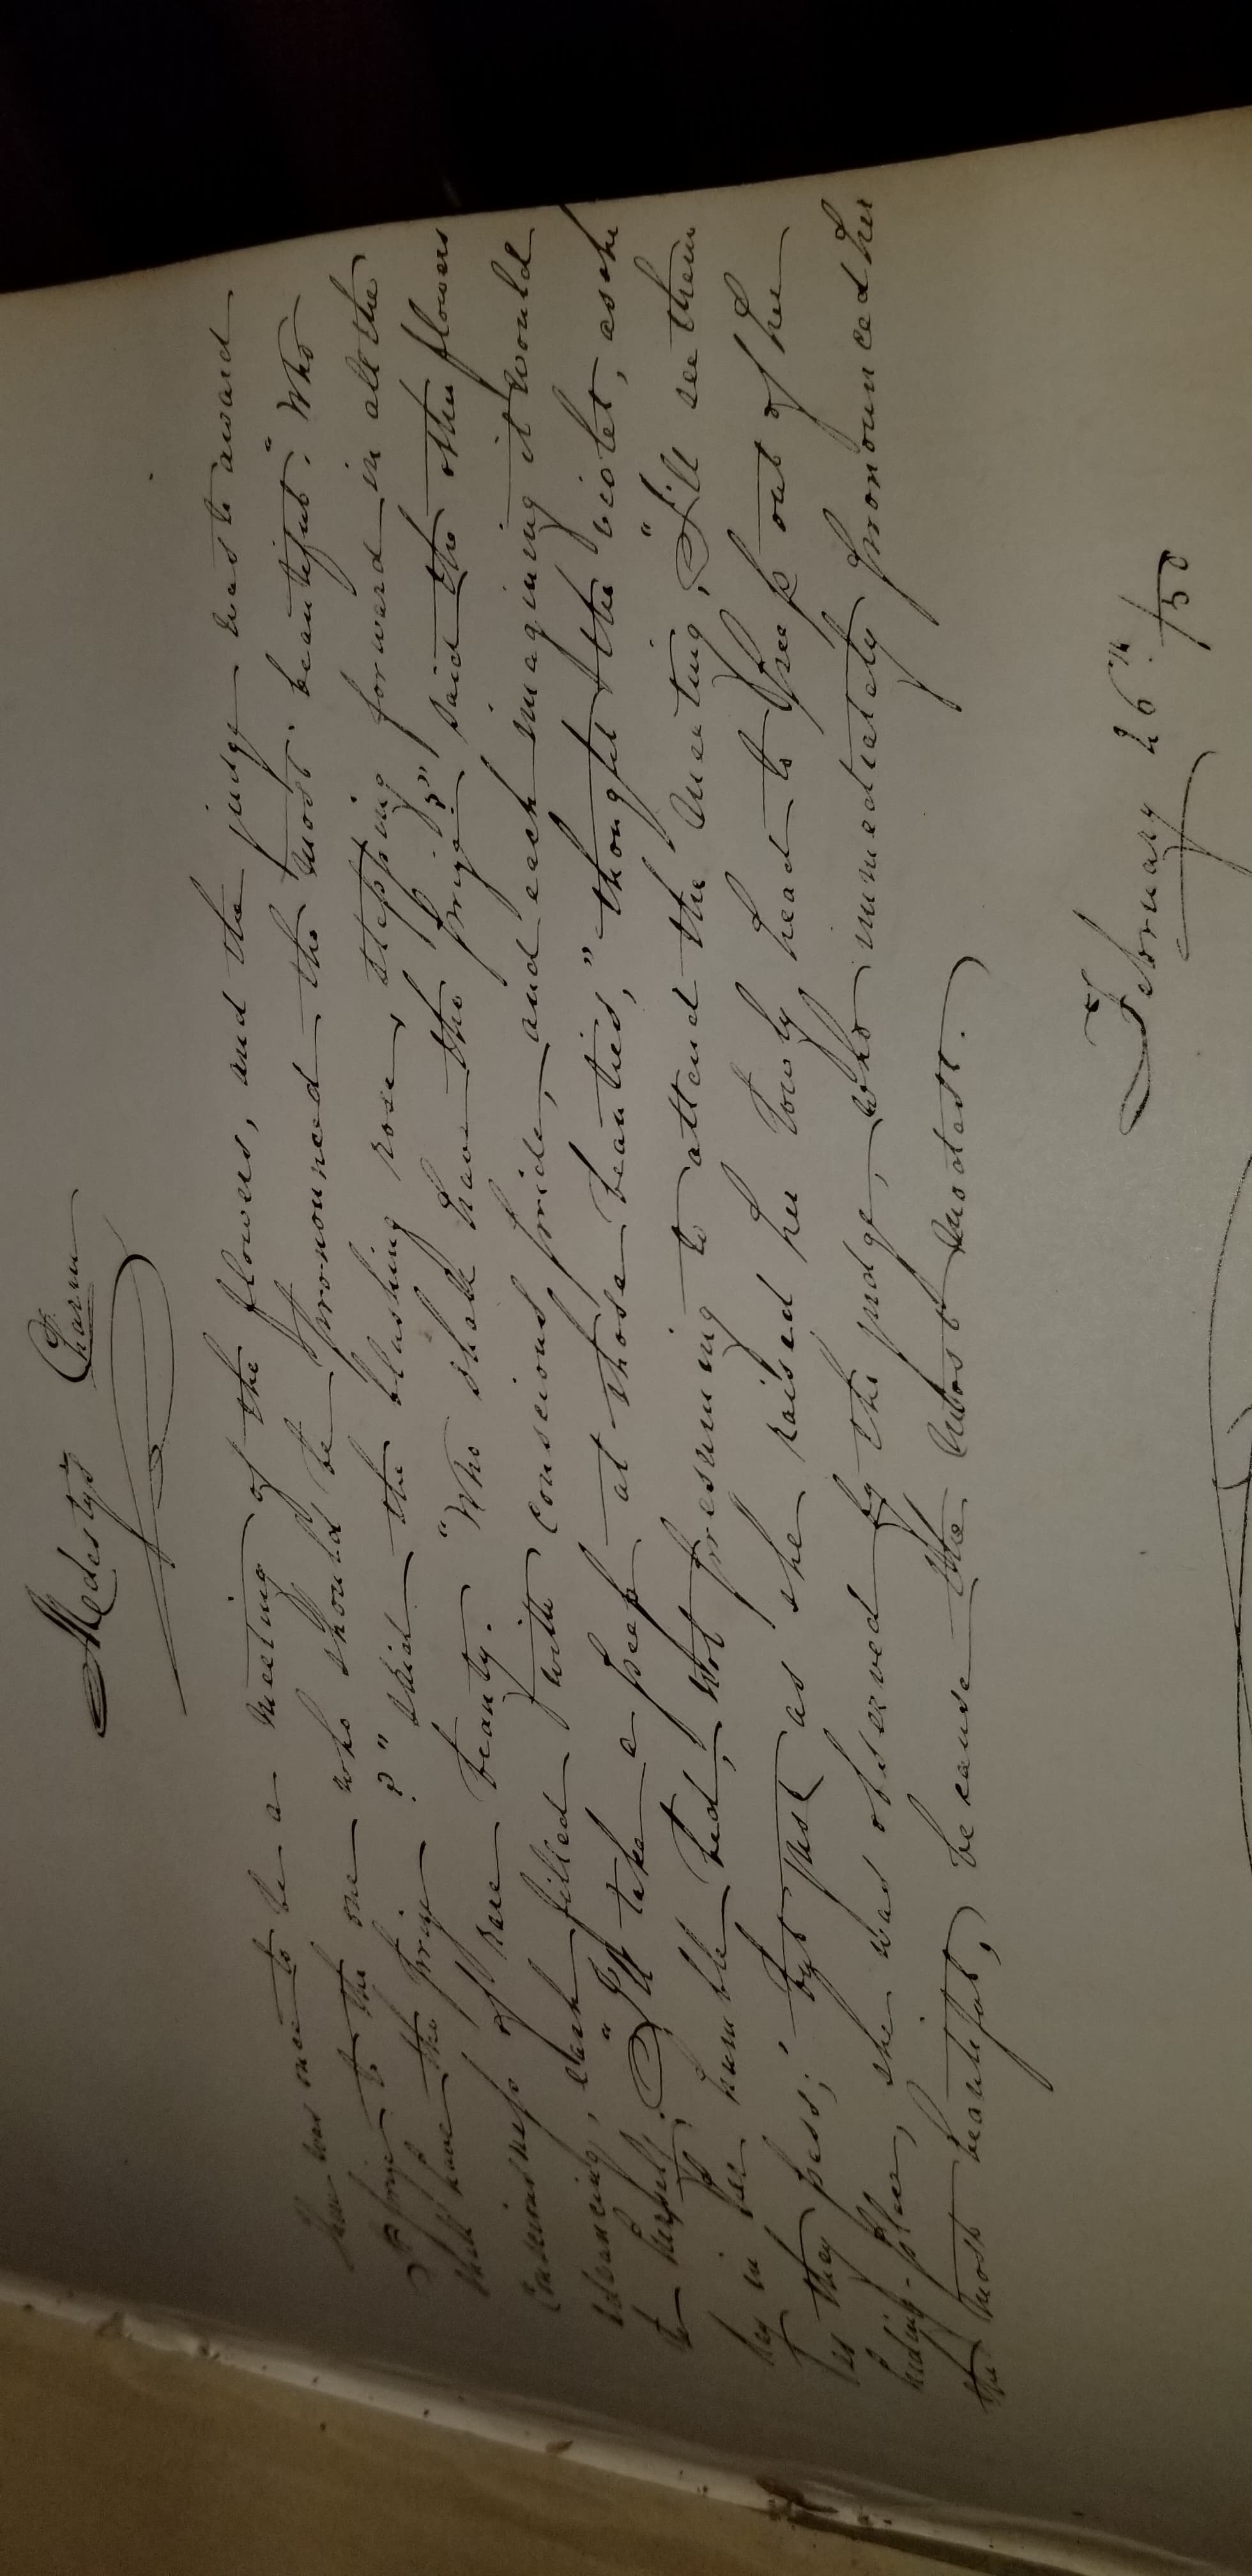 Modesty's Charm
There was once to be a meeting of the flowers, and the judge was to award
a prize to the one who should be pronounced the most beautiful. "Who
shall have the prize?" said the blushing rose, stepping forward in all the
consciousness of rare beauty. "Who shall have the prize?" said the other flowers
advancing, each filled with conscious pride, and each imagining it would
be herself. "I'll take a peep at those beauties," thought the violet, as she
lay in her humble bed, not presuming to attend the meeting; "I'll see them
as they pass;" but just as she raised her lowly head to peep out of her
hiding-place, she was observed by the judge, who immediately pronounced her
the most beautiful, because the most modest.
February 26th /50